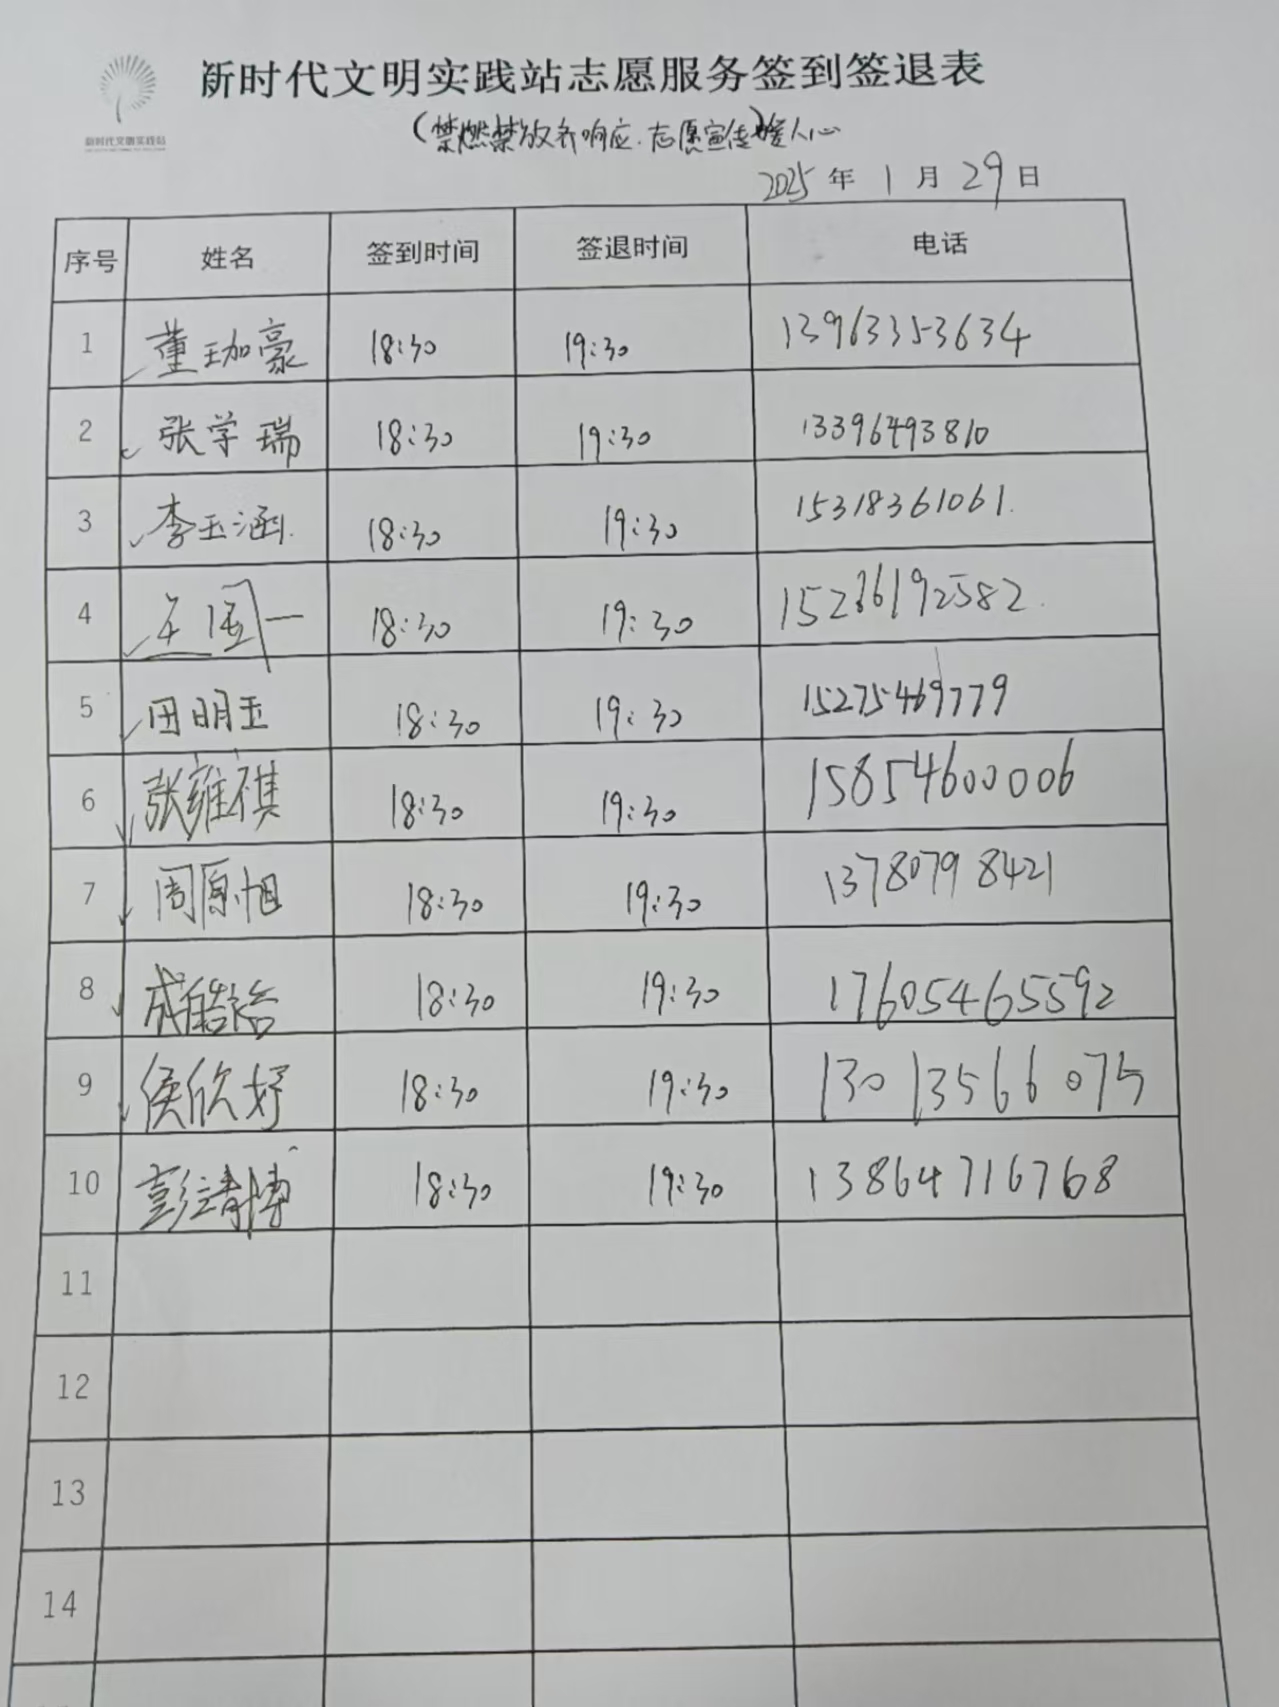 新时代文明实践站志愿服务签到签退表
新时代文明实践站
(禁燃禁放齐响应.志愿宣传暖人心
2025年1月29日
序号 姓名 签到时间 签退时间 电话
1 董珈豪 18:30 19:30 13963353634
2 张学瑞 18:30 19:30 13396493810
3 李玉涵 18:30 19:30 15318361061
4 一 18:30 19:30
5 田明玉 18:30 19:30 15275469779
6 张雍祺 18:30 19:30 15854600006
7 周原旭 18:30 19:30 13780798421
8 成皓 18:30 19:30 17605465592
9 侯欣妤 18:30 19:30 13013566075
10 彭靖博 18:30 19:30 13864716768
11
12
13
14